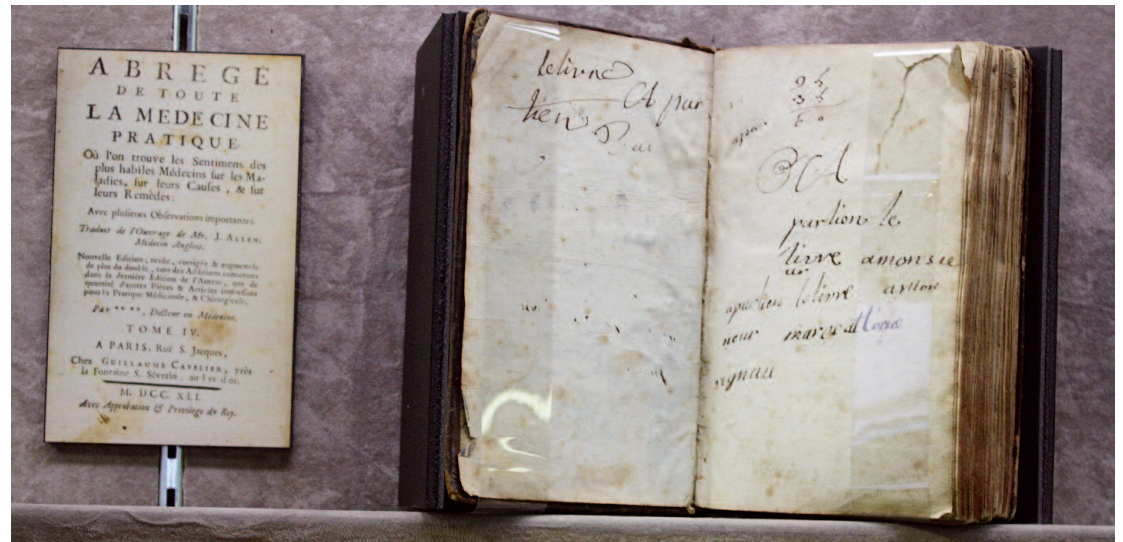 ABREGÉ
DE TOUTE
LA MEDECINE
PRATIQUE
Où l'on trouve les Sentimens des
plus habiles Médecins sur les Ma-
ladies, sur leurs Causes, & sur
leurs Remèdes:
Avec plusieurs Observations importantes.
Traduit de l'Ouvrage de Mr. J. ALLEN,
Medecin Anglois.
Nouvelle Edition, revûe, corrigée & augmentée
de plus du double, tant des Additions contenues
dans la derniére Edition de l'Auteur, que de
quantité d'autres Piéces & Articles intéressans
pour la Pratique Médicinale, & Chirurgicale.
Par ** **, Docteur en Médecine.
TOME IV.
A PARIS, Ruë S. Jacques,
Chez GUILLAUME CAVELIER, près
la Fontaine S. Séverin, au Lys d'or.
M. DCC. XLI.
Avec Approbation & Privilege du Roy.
le livre
A par
tien
partien le
livre amonsie
ur
apartien le livre
neur